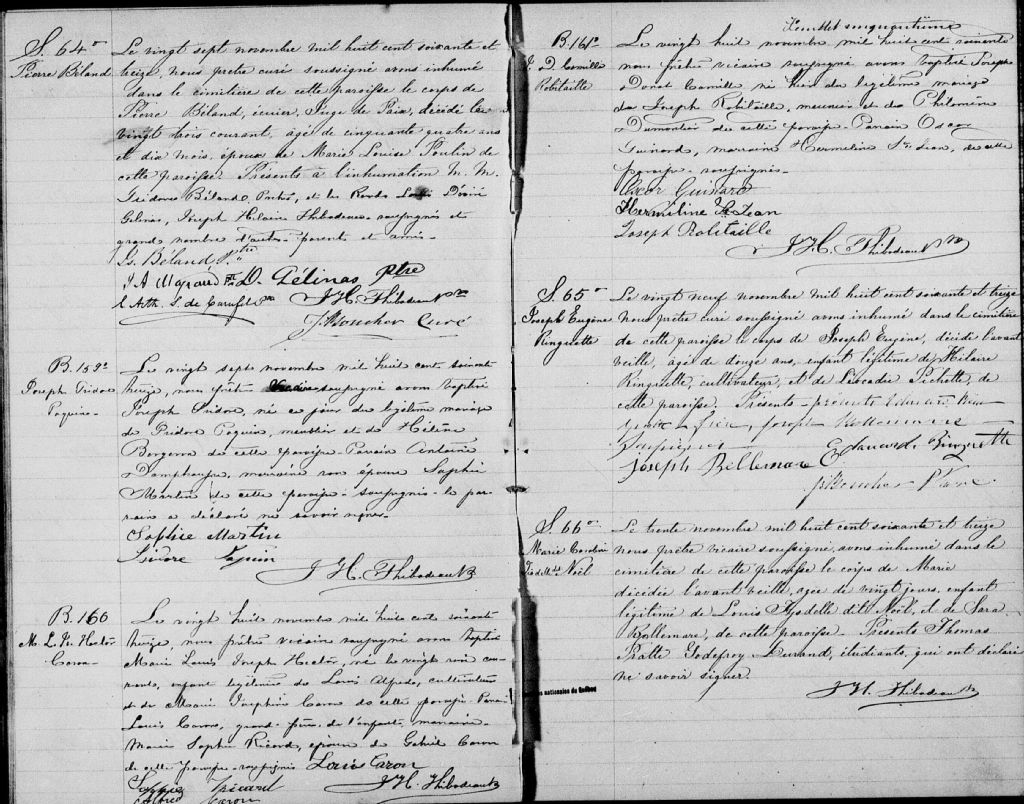 S. 64e
Pierre Béland
Le vingt sept novembre mil huit cent soixante et
treize, nous prêtre curé soussigné avons inhumé
dans le cimetière de cette paroisse le corps de
Pierre Béland, écuier, Juge de Paix, décédé le
vingt trois courant, âgé de cinquante quatre ans
et dix mois, époux de Marie Louise Poulin de
cette paroisse. Présents à l'inhumation M. M.
Isidore Béland Prêtre, et les Rvds Louis Désiré
Gelinas, Joseph Hilaire Thibodeau soussignés et
grand nombre d'autres parents et amis.
Is. Béland Ptre
D. Gélinas Ptre
J. H. Thibodeau
J. Boucher Curé
B. 159e
Joseph Isidore
Paquin
Le vingt sept novembre mil huit cent soixante
treize, nous prêtre vicaire soussigné avons baptisé
Joseph Isidore, né ce jour du légitime mariage
de Isidore Paquin, meunier et de Hélène
Bergeron de cette paroisse. Parrain Antoine
marraine son épouse Sophie
Martin de cette paroisse soussignés le par-
rain a déclaré ne savoir signer.
Sophie Martin
Isidore Paquin
J. H. Thibodeau
B. 160
M. L. J. Hector
Caron
Le vingt huit novembre mil huit cent soixante
treize, nous prêtre vicaire soussigné avons baptisé
Marie Louis Joseph Hector, né le vingt cou-
rant, enfant légitime de Louis Alfred, cultivateur
et de Marie Joséphine Caron de cette paroisse. Parrain
Louis Caron, grand-père de l'enfant, marraine
Marie Sophie Ricard, épouse de Gabriel Caron
de cette paroisse soussignés Louis Caron
Sophie Ricard
Alfred Caron
J. H. Thibodeau
Feuillet cinquantième
B. 161e
J. D. Camille
Robitaille
Le vingt huit novembre mil huit cent soixante
nous prêtre vicaire soussigné avons baptisé Joseph
Donat Camille né hier du légitime mariage
de Joseph Robitaille, meunier et de Philomène
Dumontier de cette paroisse. Parrain Oscar
Guinard, marraine Hermeline St. Jean, de cette
paroisse soussignés.
Oscar Guinard
Hermeline St Jean
Joseph Robitaille
J. H. Thibodeau
S. 65e
Joseph Eugène
Ringuette
Le vingt neuf novembre mil huit cent soixante et treize
nous prêtre curé soussigné avons inhumé dans le cimetière
de cette paroisse le corps de Joseph Eugène, décédé l'avant
veille, âgé de douze ans, enfant légitime de Hilaire
Ringuette, cultivateur, et de Léocadie Pichette, de
cette paroisse. Présents
Joseph Bellemare
soussignés
Joseph Bellemare Edouard Ringuette
J. Boucher Ptre Curé
S. 66e
Marie
dit Noël
Le trente novembre mil huit cent soixante et treize
nous prêtre vicaire soussigné, avons inhumé dans le
cimetière de cette paroisse le corps de Marie
décédée l'avant veille, agée de vingt jours, enfant
légitime de Louis dit Noël, et de Sara
Bellemare, de cette paroisse. Présents Thomas
Pratte Godefroy Durand, étudiants, qui ont déclaré
ne savoir signer.
J. H. Thibodeau
nationales du Québec